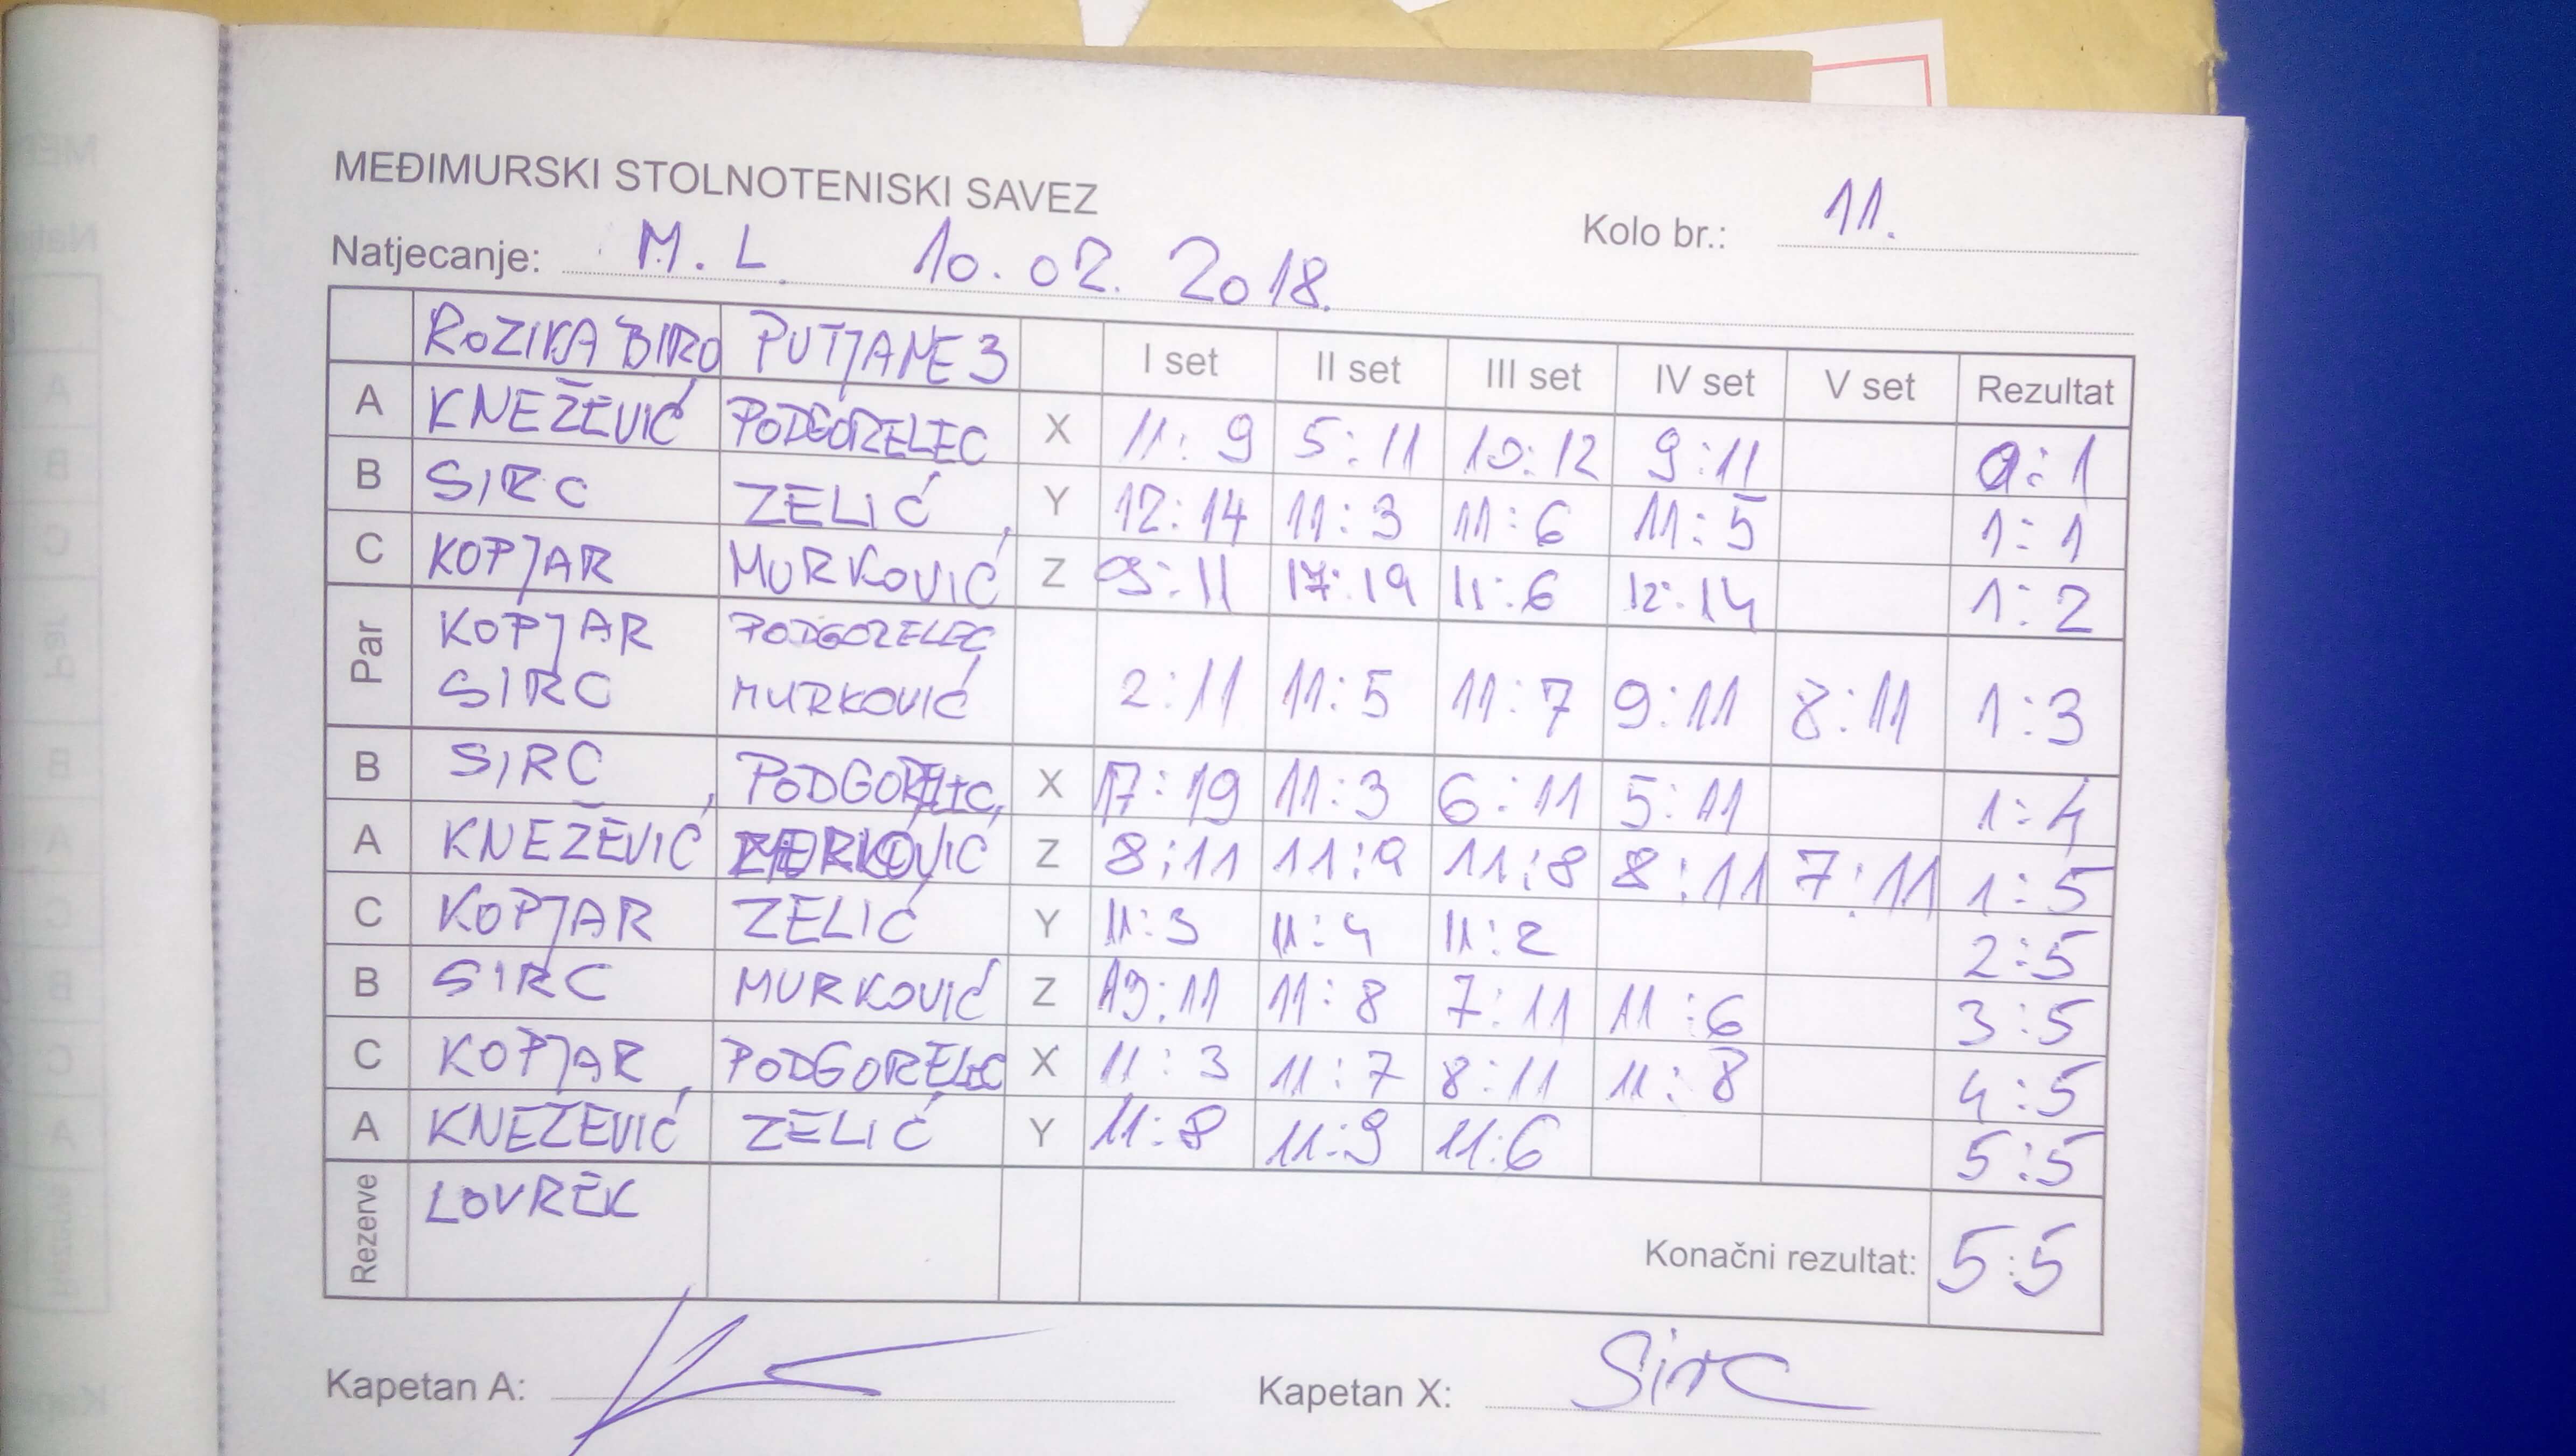 MEĐIMURSKI STOLNOTENISKI SAVEZ
Kolo br.: 11.
Natjecanje: M. L. 10. 02. 2018.
ROZIKA BIRO PUTJANE 3 I set II set III set IV set V set Rezultat
A KNEŽEVIĆ PODGORELEC X 11:9 5:11 10:12 9:11 0:1
B SIRC ZELIĆ Y 12:14 11:3 11:6 11:5 1:1
C KOPJAR MURKOVIĆ Z 9:11 17:19 11:6 12:14 1:2
Par KOPJAR SIRC PODGORELEC MURKOVIĆ 2:11 11:5 11:7 9:11 8:11 1:3
B SIRC PODGORELEC X 17:19 11:3 6:11 5:11 1:4
A KNEŽEVIĆ MURKOVIĆ Z 8:11 11:9 11:8 8:11 7:11 1:5
C KOPJAR ZELIĆ Y 11:3 11:4 11:2 2:5
B SIRC MURKOVIĆ Z 13:11 11:8 7:11 11:6 3:5
C KOPJAR PODGORELEC X 11:3 11:7 8:11 11:8 4:5
A KNEŽEVIĆ ZELIĆ Y 11:8 11:9 11:6 5:5
Rezerve LOVREK
Konačni rezultat: 5:5
Kapetan A: Kapetan X: Sirc